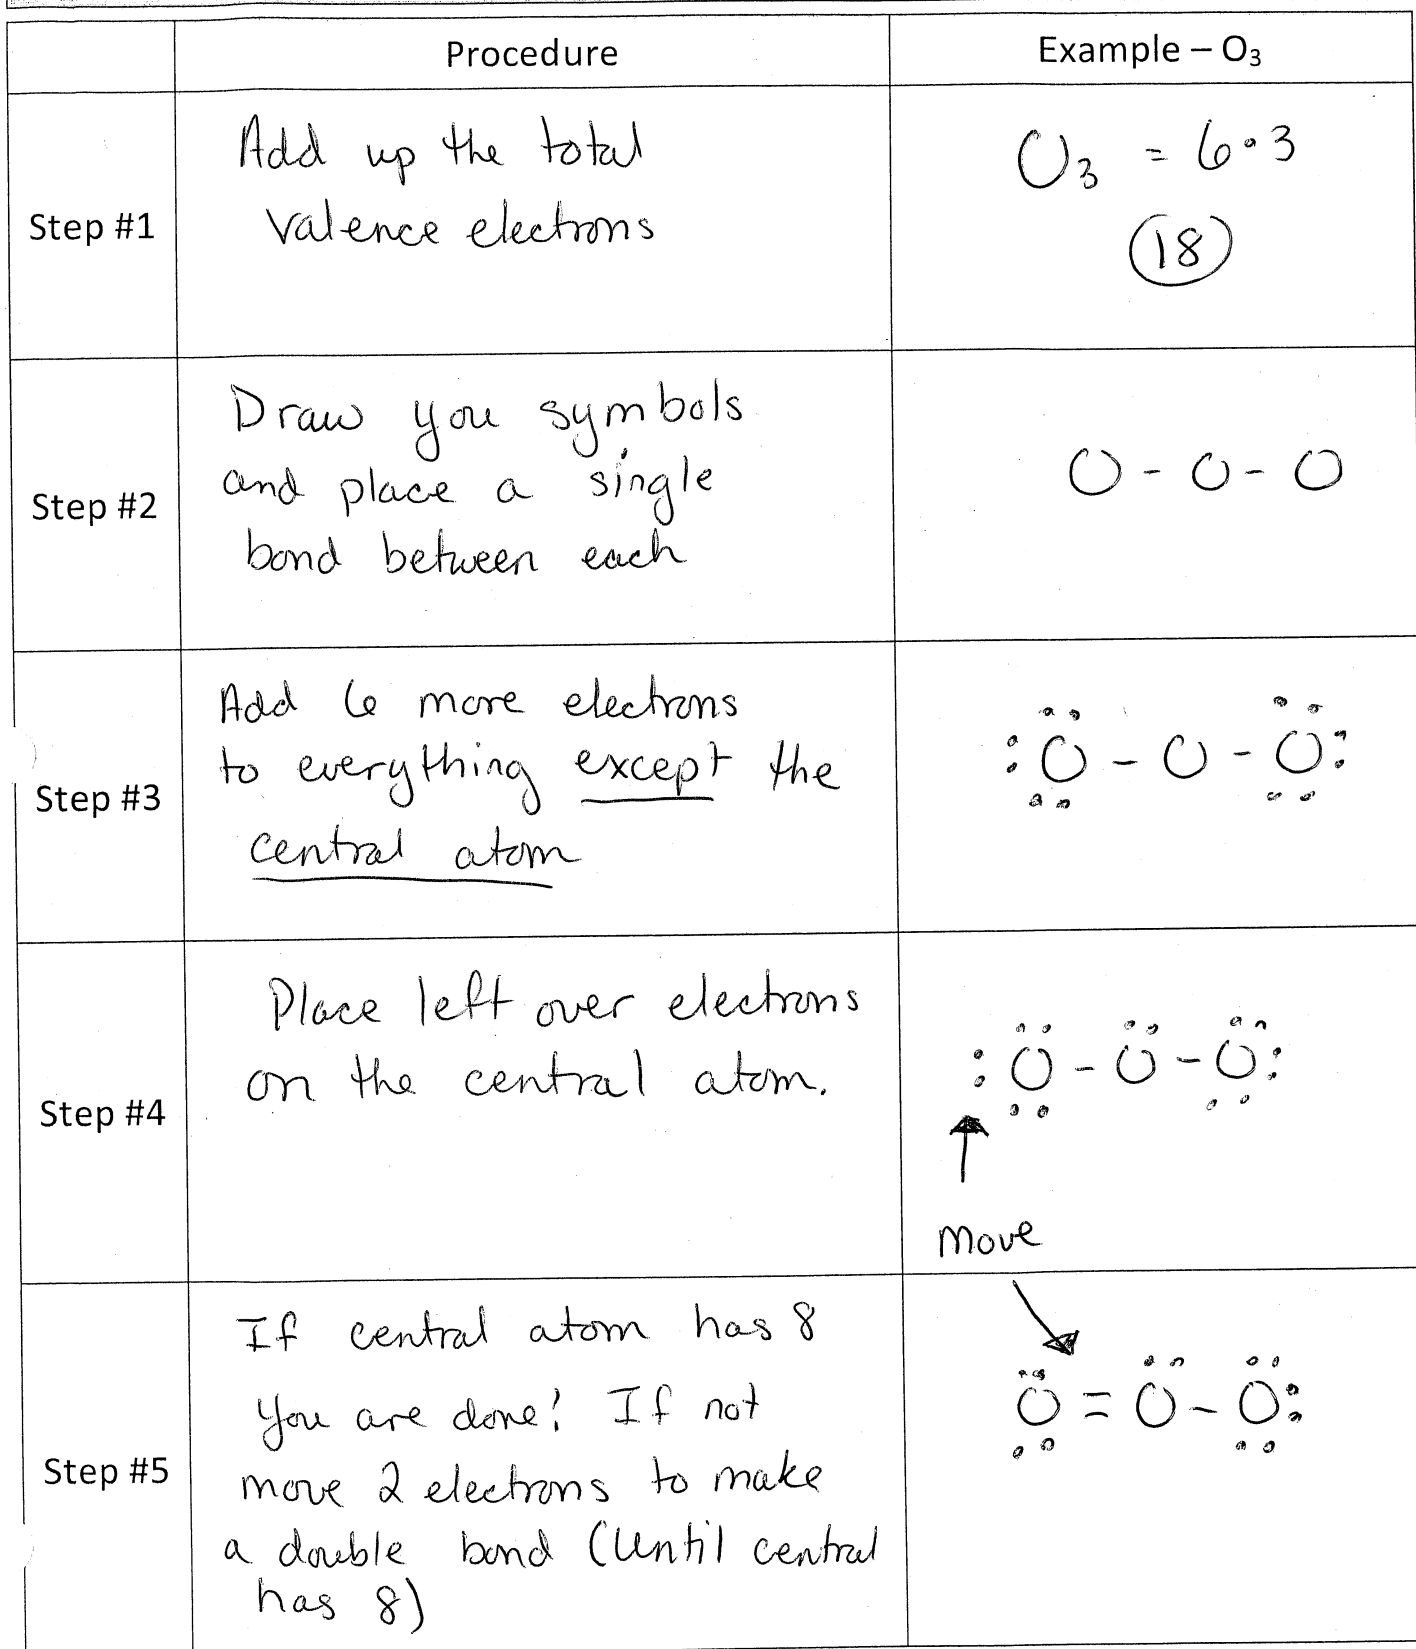 Procedure
Example – O₃
Step #1
Add up the total
valence electrons
O₃ = 6·3
18
Step #2
Draw you symbols
and place a single
bond between each
O - O - O
Step #3
Add 6 more electrons
to everything except the
central atom
:O - O - O:
Step #4
Place left over electrons
on the central atom.
:O - O - O:
Move
Step #5
If central atom has 8
you are done! If not
move 2 electrons to make
a double bond (Until central
has 8)
O = O - O: